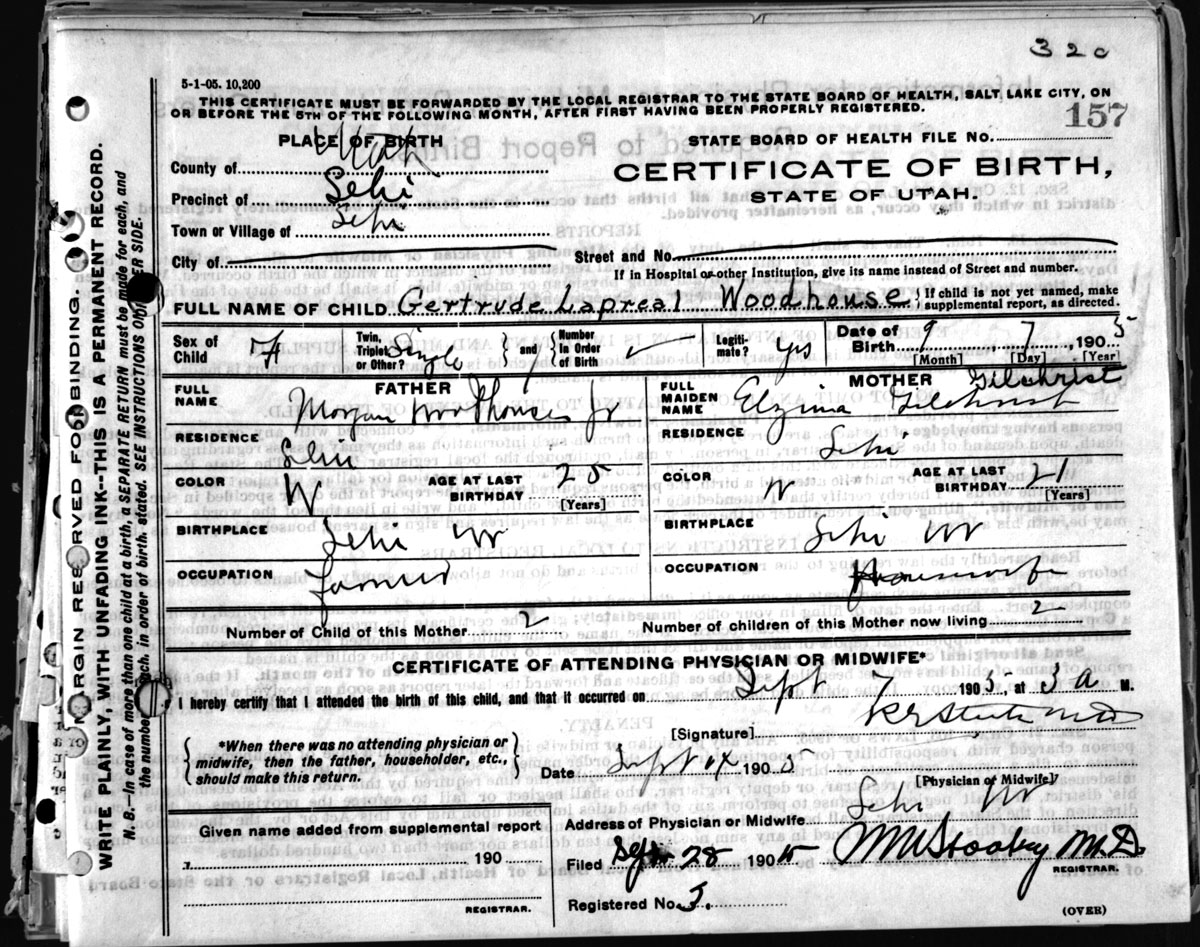 32c
5-1-05. 10,200
THIS CERTIFICATE MUST BE FORWARDED BY THE LOCAL REGISTRAR TO THE STATE BOARD OF HEALTH, SALT LAKE CITY, ON
OR BEFORE THE 5TH OF THE FOLLOWING MONTH, AFTER FIRST HAVING BEEN PROPERLY REGISTERED.
157
PLACE OF BIRTH
STATE BOARD OF HEALTH FILE NO.
County of Utah
CERTIFICATE OF BIRTH,
Precinct of Lehi
STATE OF UTAH.
Town or Village of Lehi
City of
Street and No.
If in Hospital or other Institution, give its name instead of Street and number.
FULL NAME OF CHILD Gertrude Lapreal Woodhouse { If child is not yet named, make supplemental report, as directed.
Sex of Child F Twin, Triplet, or Other? Single { and } Number in Order of Birth 2 Legitimate? yes Date of Birth 9 7, 1905
[Month] [Day] [Year]
FATHER
MOTHER Gilchrist
FULL NAME Morgan Woodhouse Jr
FULL MAIDEN NAME Elzina Gilchrist
RESIDENCE Lehi
RESIDENCE Lehi
COLOR W AGE AT LAST BIRTHDAY 25 [Years]
COLOR W AGE AT LAST BIRTHDAY 21 [Years]
BIRTHPLACE Lehi Ut
BIRTHPLACE Lehi Ut
OCCUPATION farmer
OCCUPATION Housewife
Number of Child of this Mother 2
Number of children of this Mother now living 2
CERTIFICATE OF ATTENDING PHYSICIAN OR MIDWIFE*
I hereby certify that I attended the birth of this child, and that it occurred on Sept 7 1905, at 3 a M.
[Signature]
{ *When there was no attending physician or midwife, then the father, householder, etc., should make this return. }
Date Sept 14 1905
[Physician or Midwife]
Address of Physician or Midwife Lehi Ut
Given name added from supplemental report
190
Filed Sep 28 1905
M.D.
REGISTRAR.
REGISTRAR.
Registered No. 3.
(OVER)
MARGIN RESERVED FOR BINDING.
WRITE PLAINLY, WITH UNFADING INK--THIS IS A PERMANENT RECORD.
N. B.—In case of more than one child at a birth, a SEPARATE RETURN must be made for each, and
the number of each, in order of birth, stated. SEE INSTRUCTIONS ON OTHER SIDE.